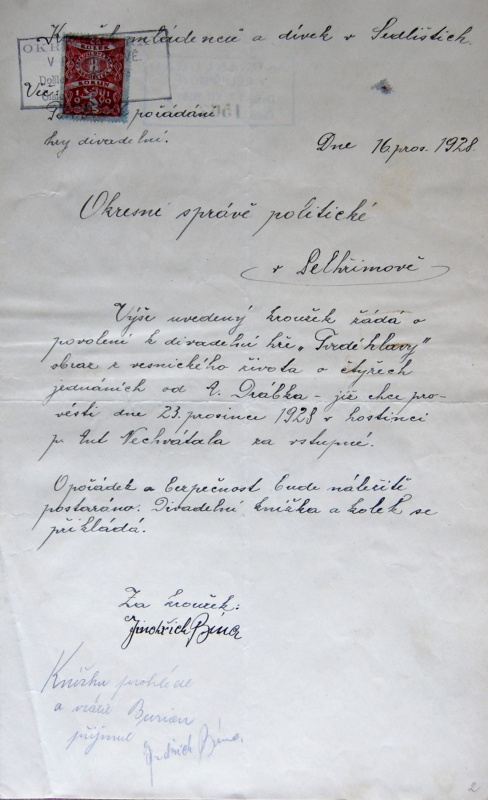 mládenců a dívek v Sedlištích.
OKR
V
Došlo
KOLEK
KORUN
Věc:
pořádání
hry divadelní.
Dne 16 pros. 1928.
Okresní správě politické
v Pelhřimově
Výše uvedený kroužek žádá o
povolení k divadelní hře „Tvrdé hlavy"
obraz z vesnického života o čtyrech
jednáních od A. Drábka – již chce pro-
vésti dne 23. prosince 1928 v hostinci
p. Ant Nechvátala za vstupné.
O pořádek a bezpečnost bude náležitě
postaráno. Divadelní knížka a kolek se
přikládá.
Za kroužek:
Jindřich Bína
Knížku prohlédl
a vrátil Burian
přijmul Jindřich Bína
2